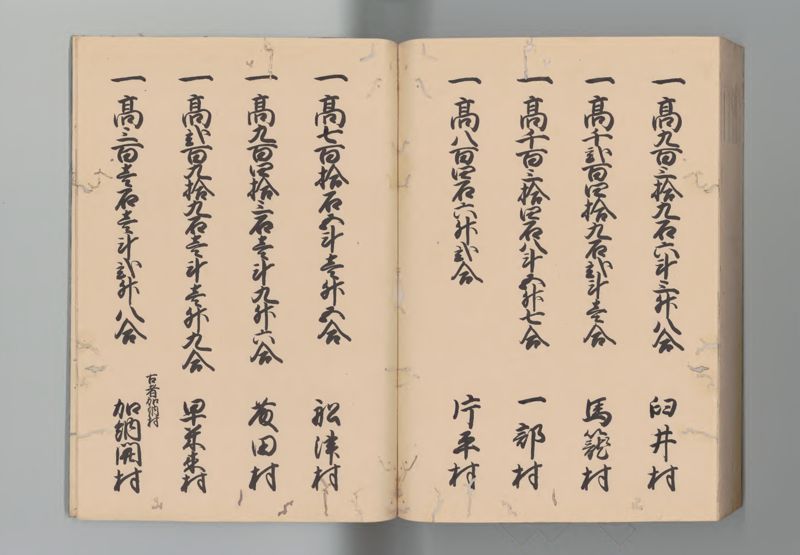 一高九百三拾九石六斗三升八合 臼井村
一高千弐百四拾九石弐斗壱合 馬籠村
一高千百三拾四石八斗五升七合 一部村
一高八百四石六升弐合 片平村
一高七百拾石五斗壱升五合 船津村
一高九百四拾三石壱斗九升六合 田村
一高弐百九拾九石壱斗壱升九合 早米来村
一高三百壱石壱斗弐升八合 加納開村
古者加納村